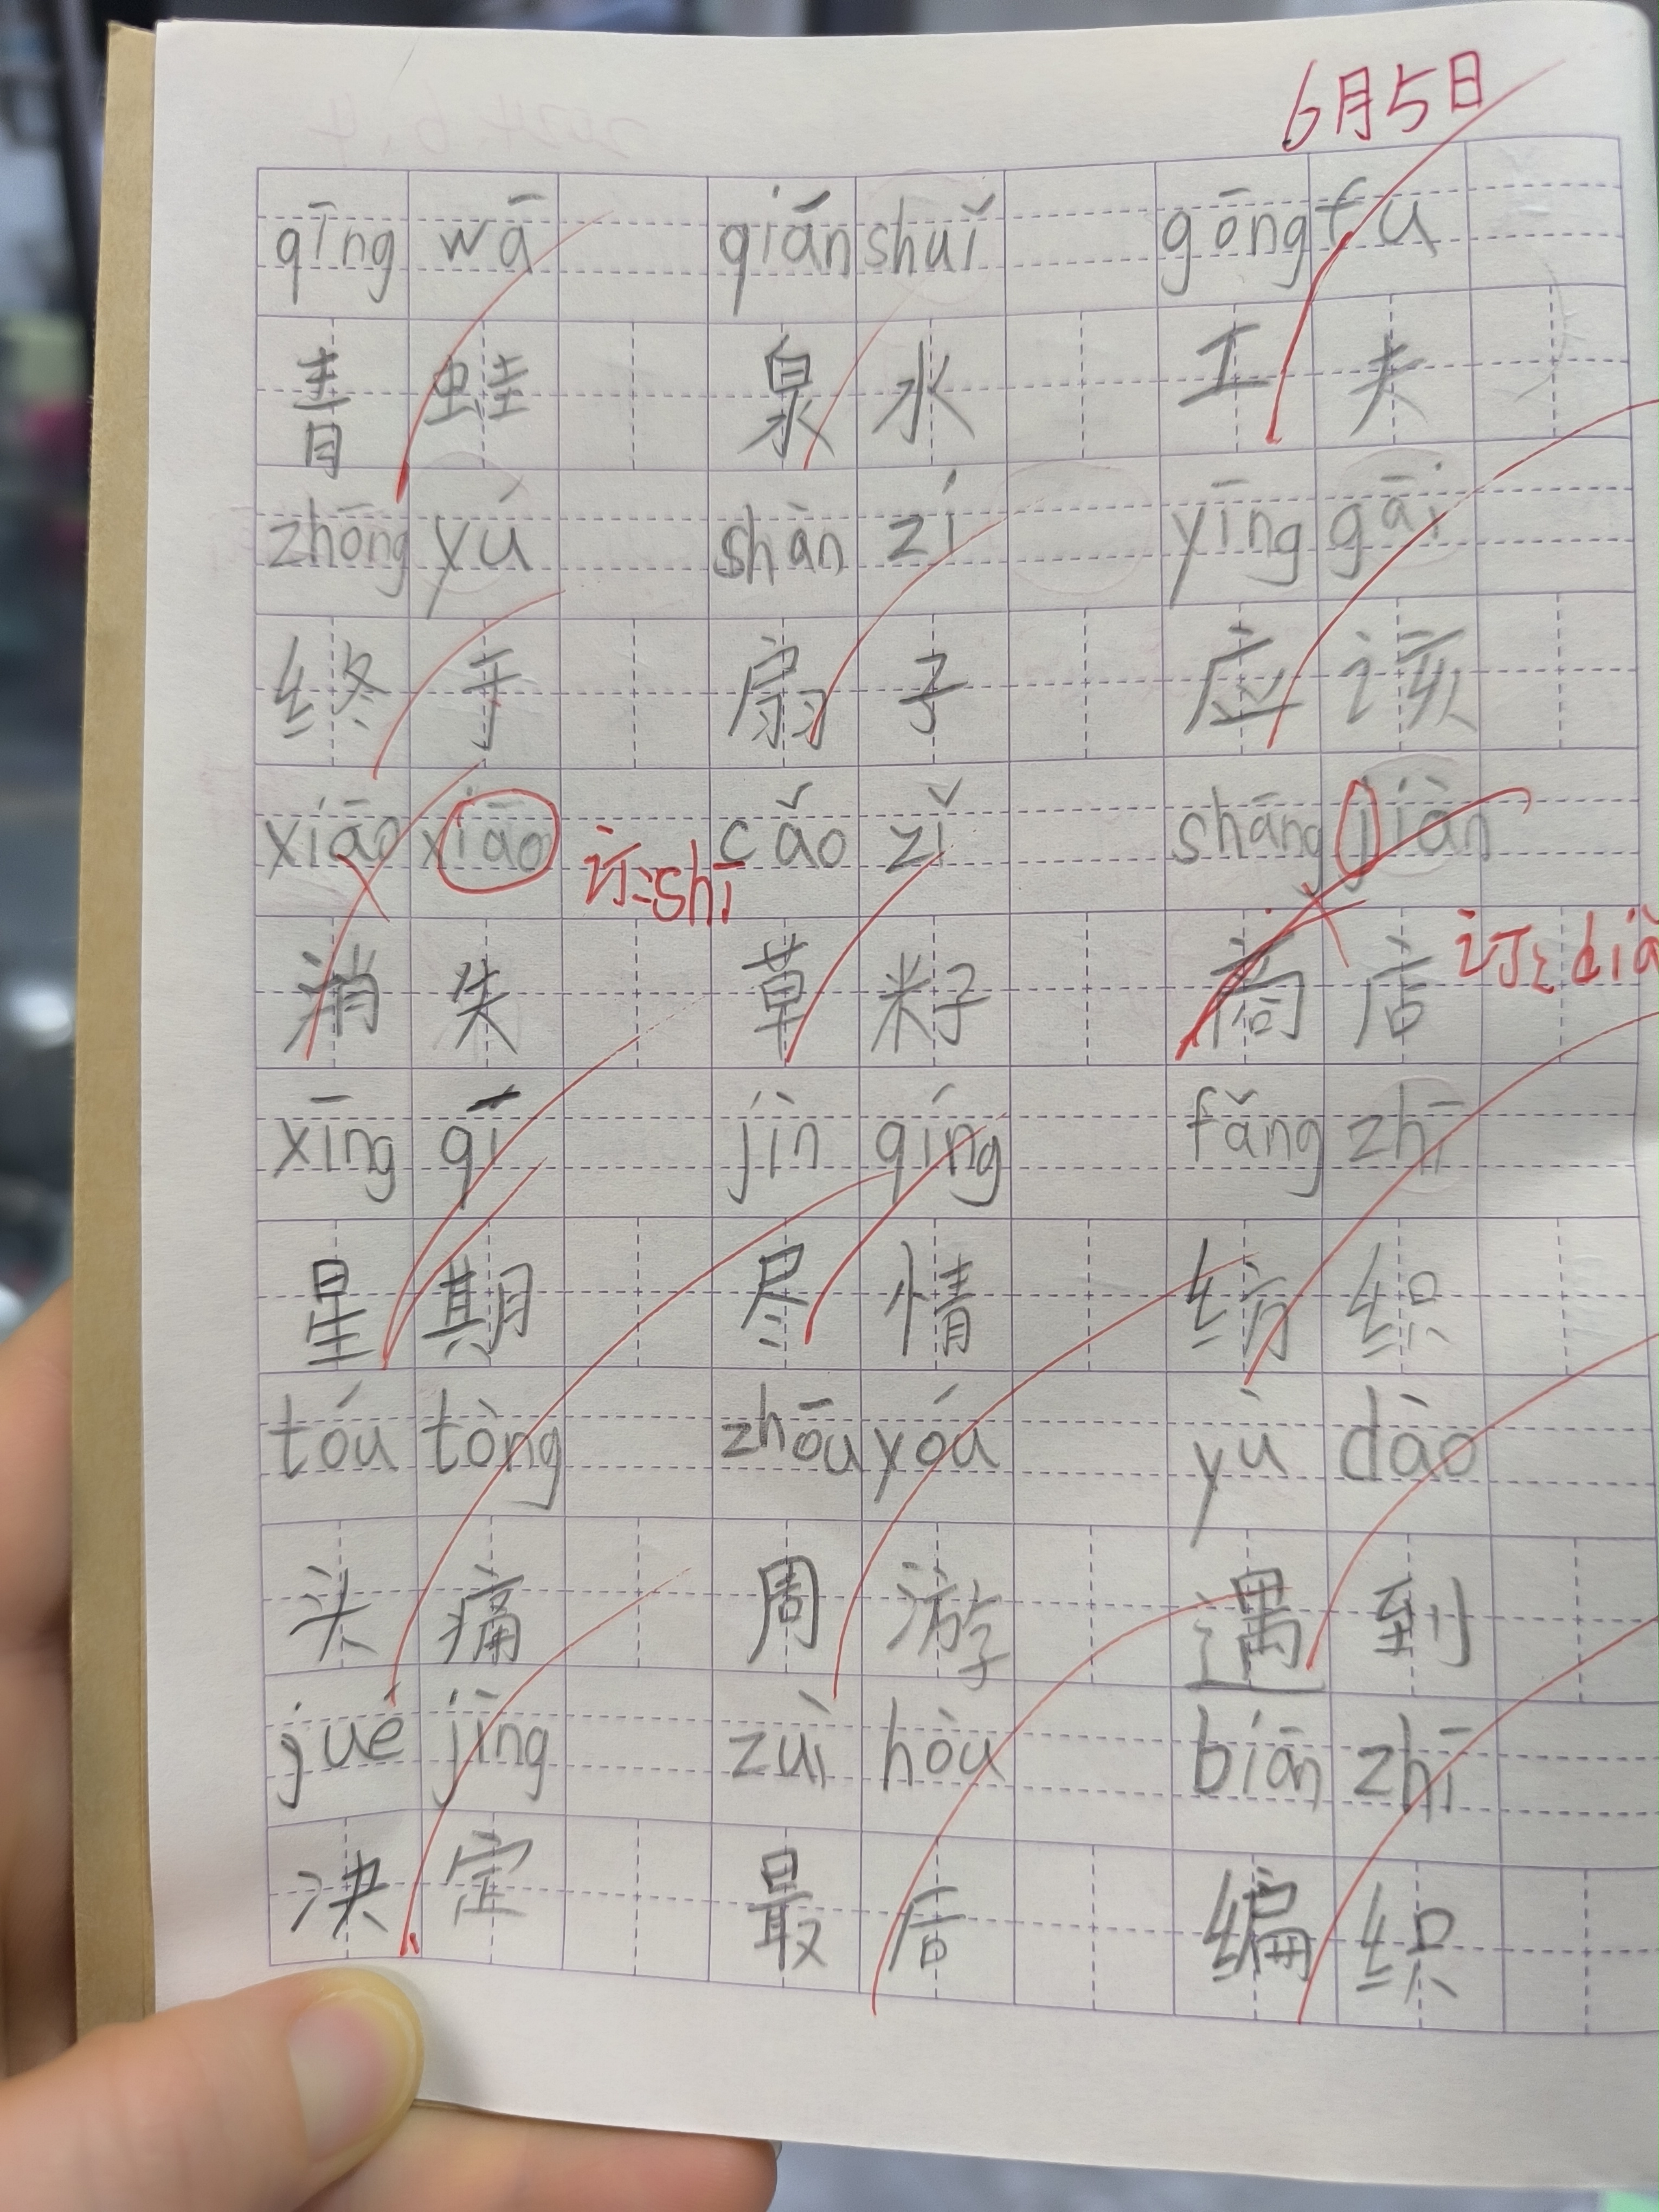 6月5日
qīng wā qián shuǐ gōng fu
青蛙 泉水 工夫
zhōng yú shàn zí yīng gāi
终于 扇子 应该
xiāo xiāo 订:shī cǎo zǐ shāng jiàn
消失 草籽 商店 订:dià
xīng qī jìn qíng fǎng zhī
星期 尽情 纺织
tóu tòng zhōu yóu yù dào
头痛 周游 遇到
jué jìng zuì hòu biān zhī
决定 最后 编织